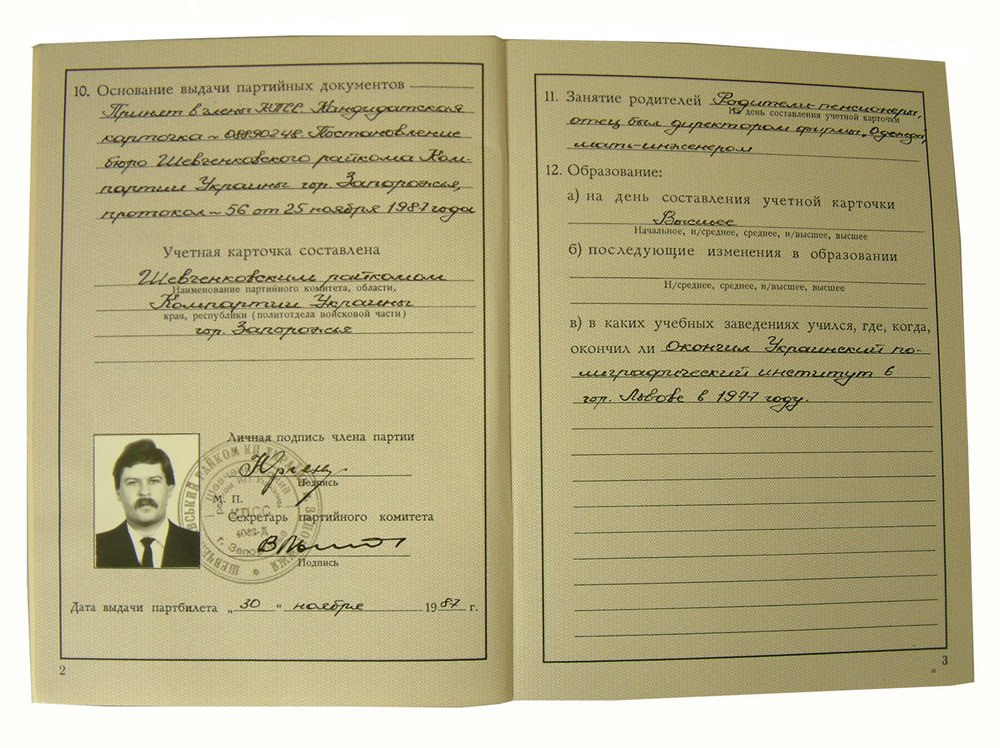 10. Основание выдачи партийных документов
Принят в члены КПСС. Кандидатская
карточка ~ 08890248. Постановление
бюро Шевченковского райкома Ком-
партии Украины гор. Запорожья,
протокол ~ 56 от 25 ноября 1987 года
Учетная карточка составлена
Шевченковским райкомом
Наименование партийного комитета, области,
Компартии Украины
края, республики (политотдела войсковой части)
гор. Запорожье
Личная подпись члена партии
Подпись
М. П.
Секретарь партийного комитета
Подпись
ШЕВЧЕНКІВСЬКИЙ РАЙКОМ КП УКРАЇНИ М. ЗАПОРІЖЖЯ
Шевченковский
райком КП Украины
КПСС
4082-Д
г. Запорожье
Дата выдачи партбилета „ 30 “ ноября 1987 г.
2
11. Занятие родителей Родители пенсионеры,
На день составления учетной карточки
отец был директором фирмы „Одежда,
мать-инженером
12. Образование:
а) на день составления учетной карточки
Высшее
Начальное, н/среднее, среднее, н/высшее, высшее
б) последующие изменения в образовании
Н/среднее, среднее, н/высшее, высшее
в) в каких учебных заведениях учился, где, когда,
окончил ли Окончил Украинский по-
лиграфический институт в
гор. Львове в 1977 году.
3